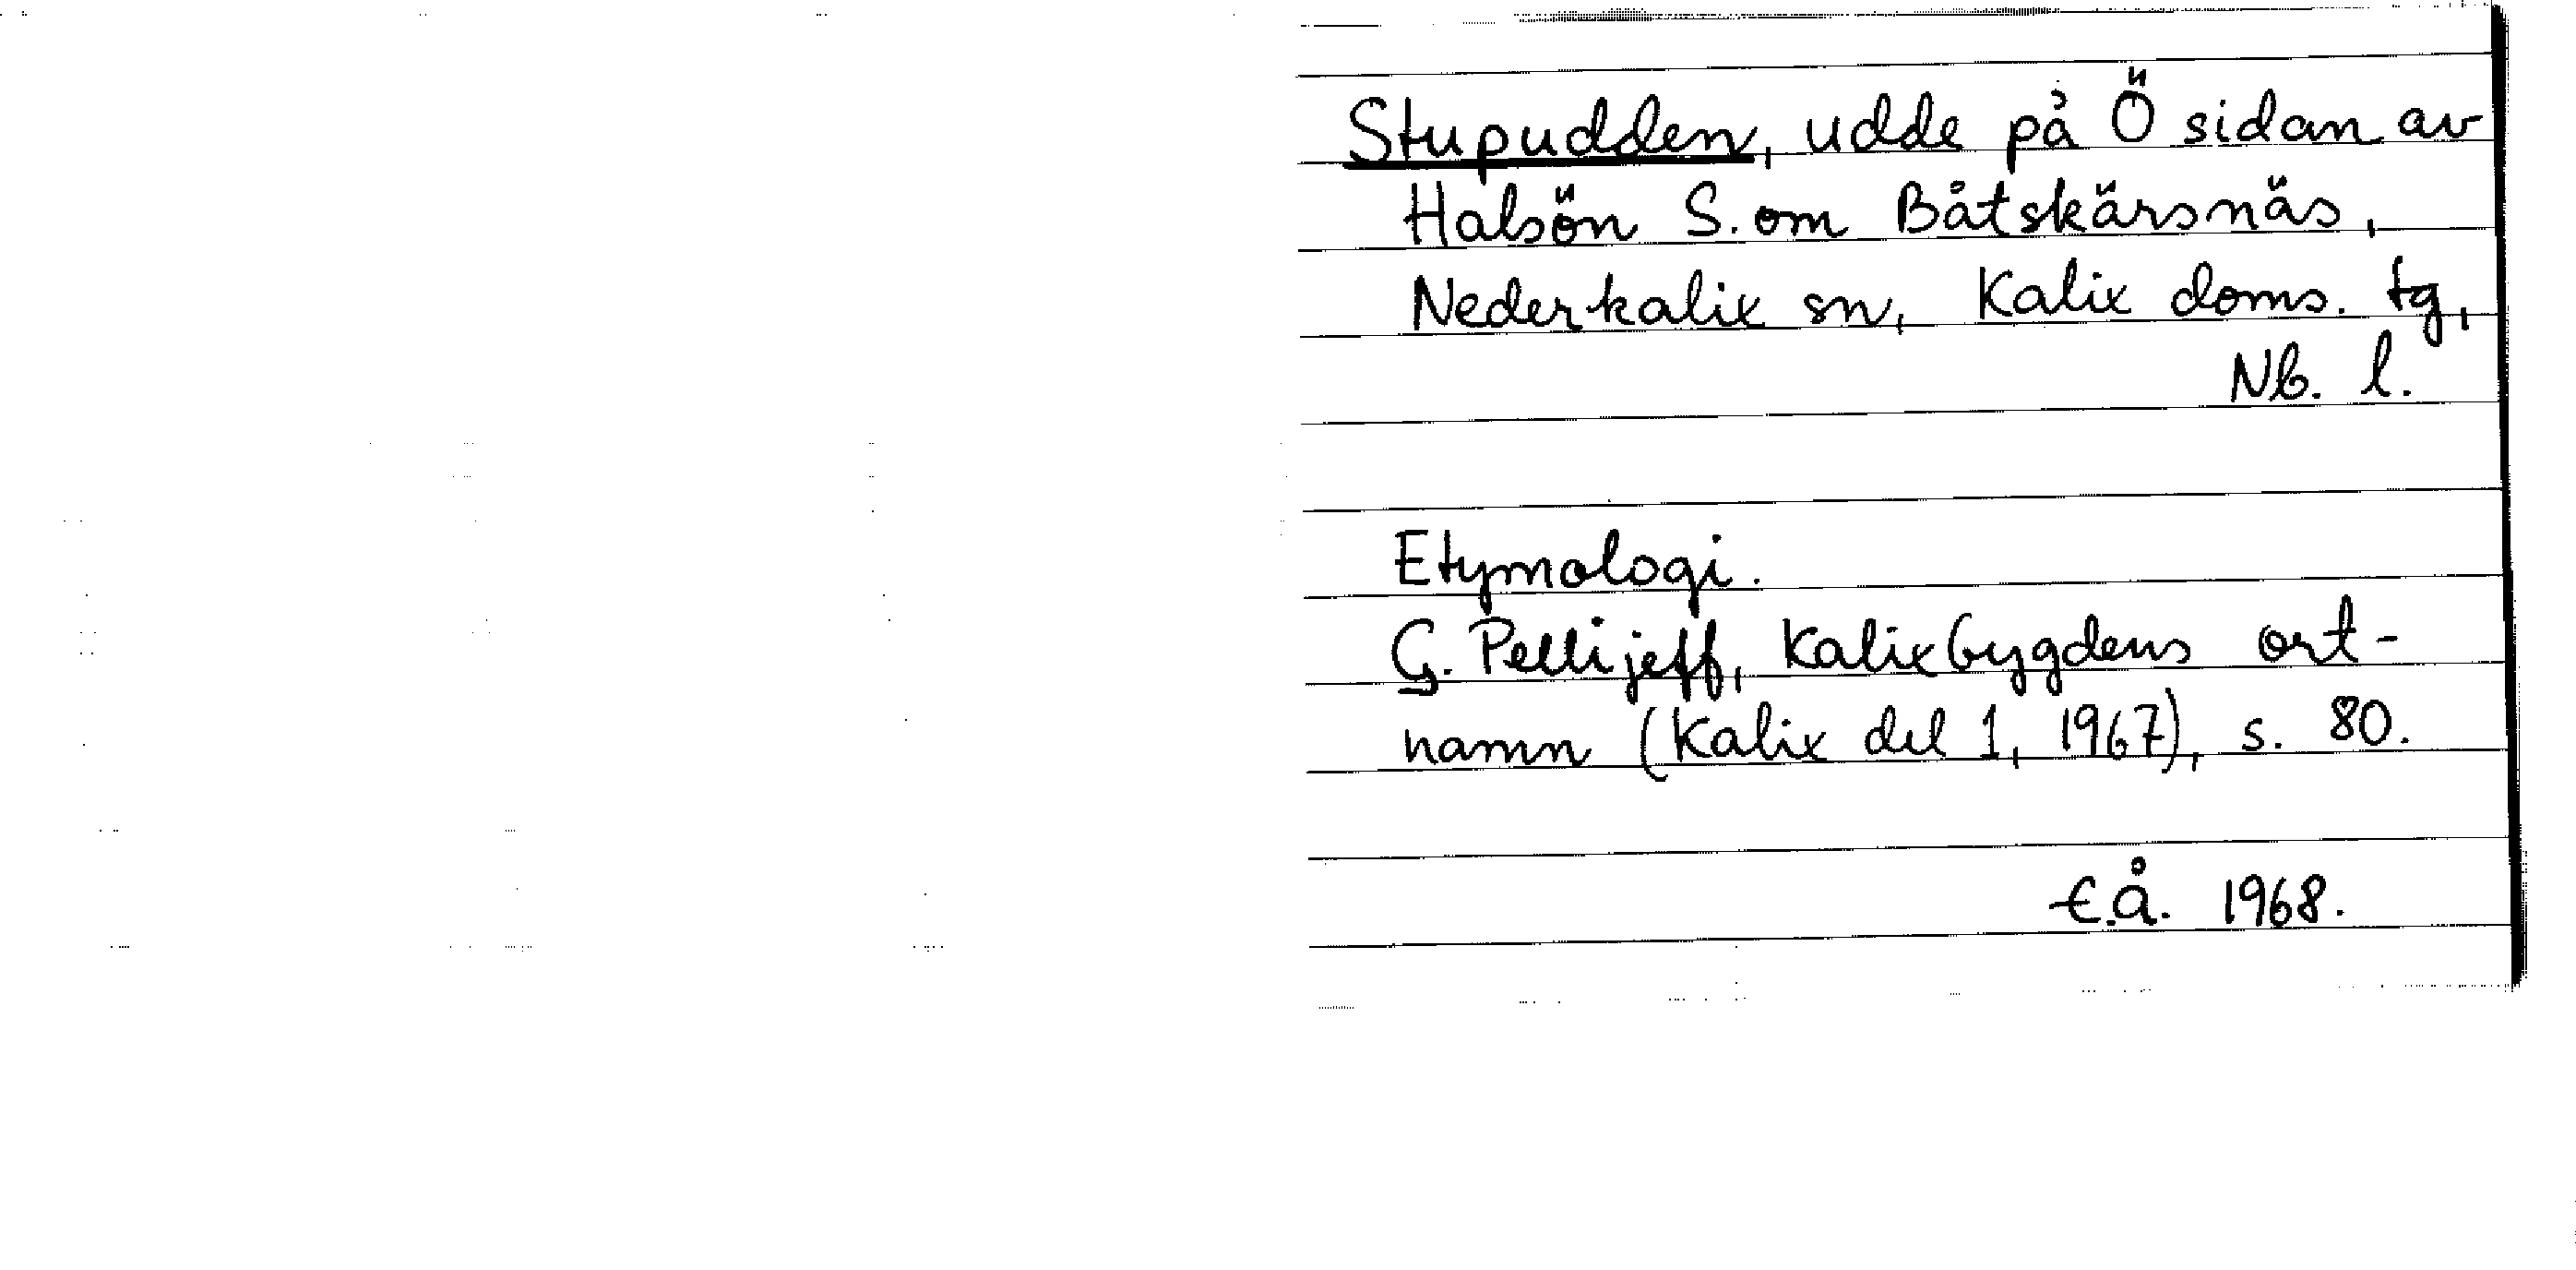 Stupudden, udde på Ö sidan av
Halsön S. om Båtskärsnäs,
Nederkalix sn, Kalix doms. tg,
Nb. l.
Etymologi.
G. Pellijeff, Kalixbygdens ort-
namn (Kalix del 1, 1967), s. 80.
E.Å. 1968.